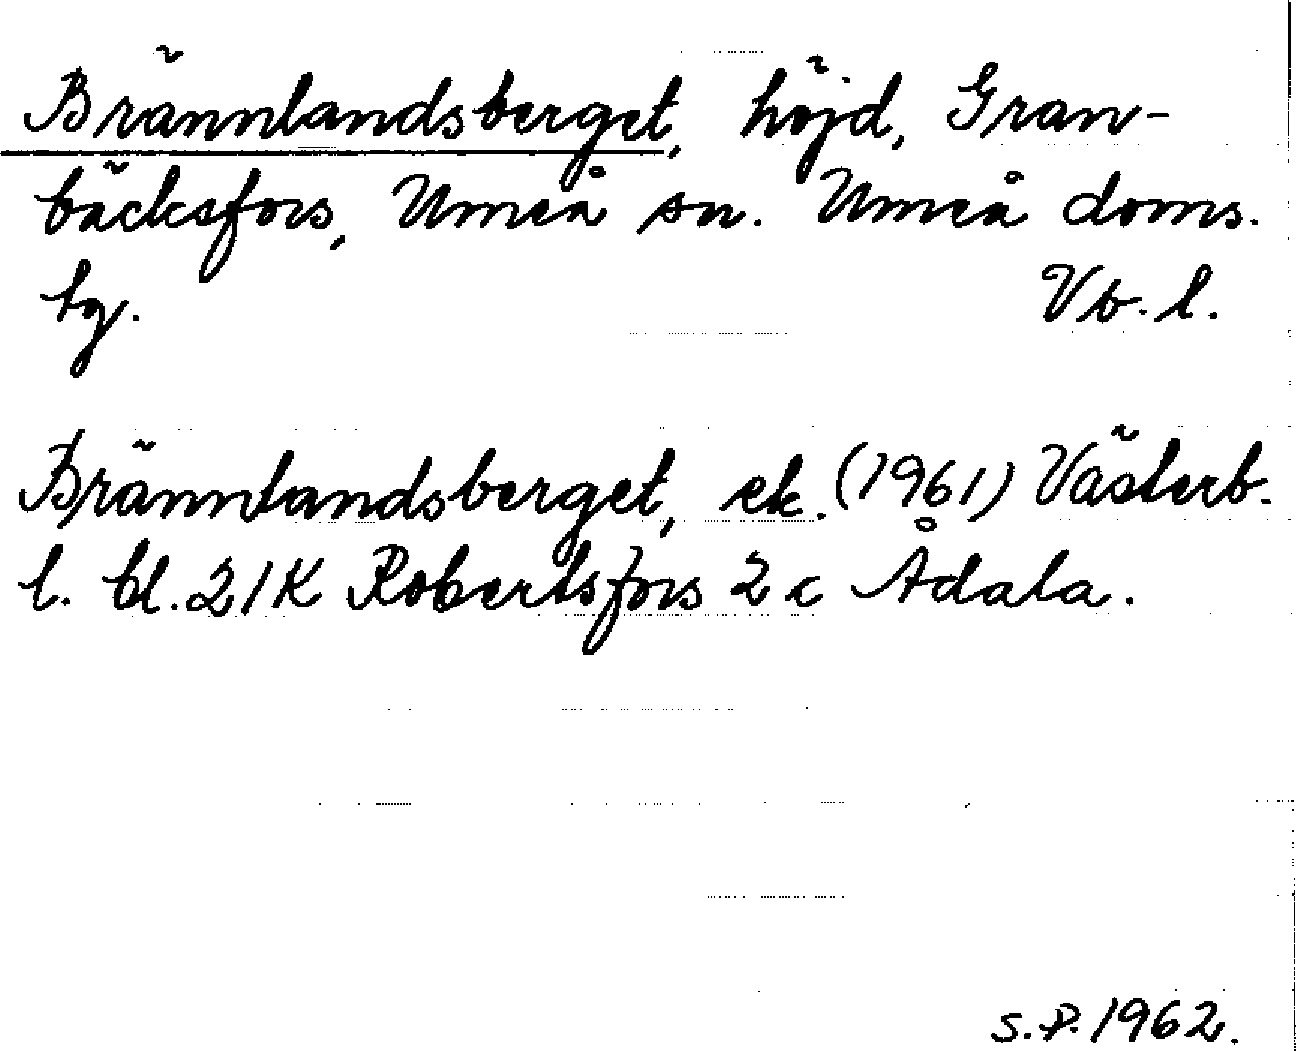 Brännlandsberget, höjd, Gran-
bäcksfors, Umeå sn. Umeå doms.
tg. Vb. l.
Brännlandsberget, ek. (1961) Västerb.
l. bl. 21K Robertsfors 2 c Ådala.
S.P. 1962.